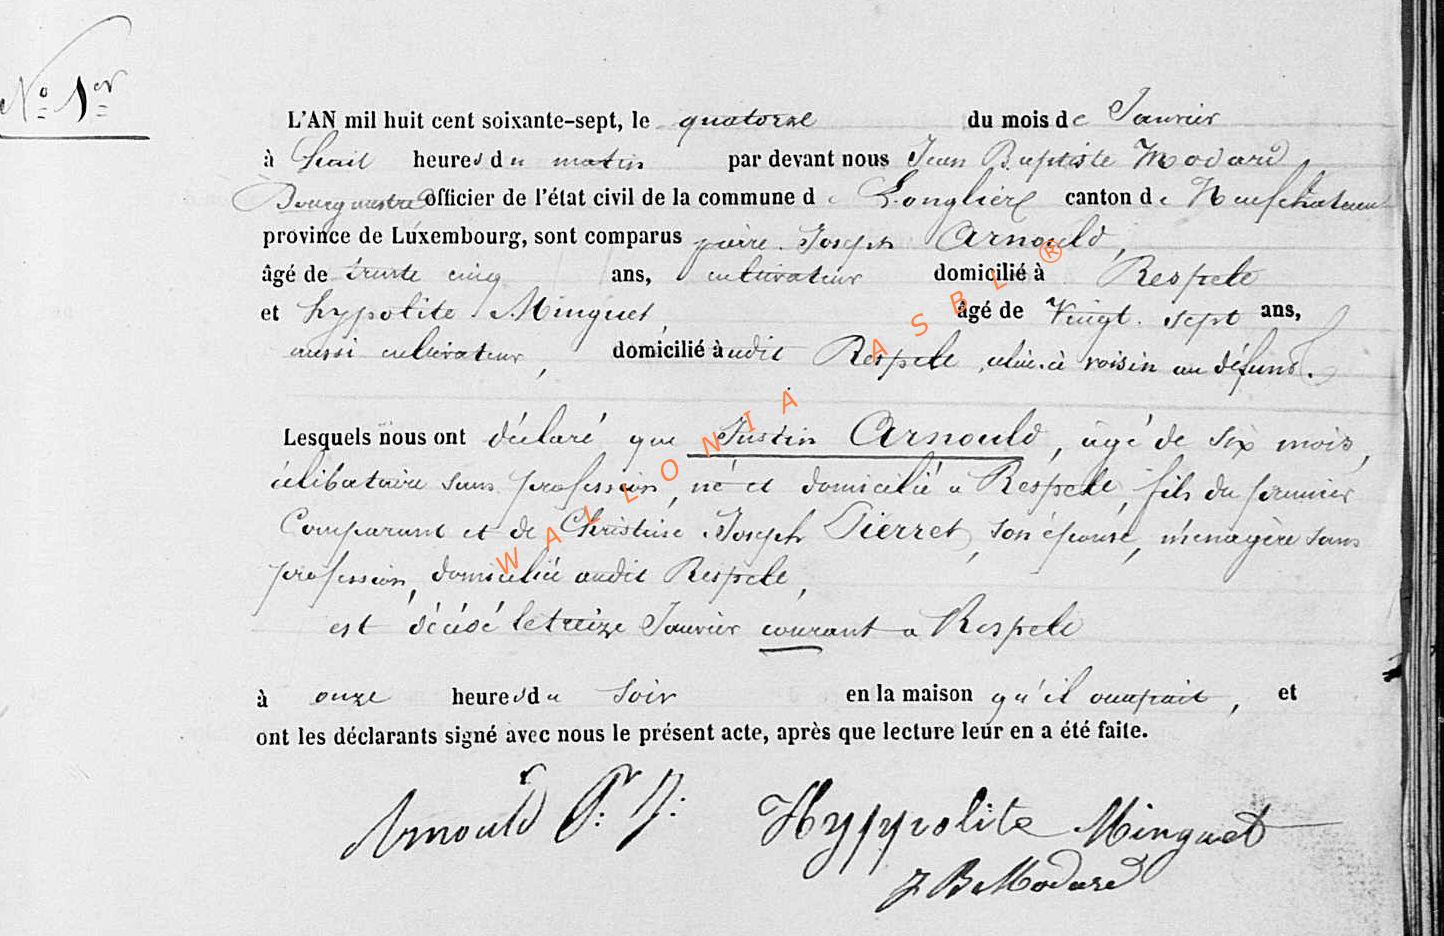 N° 1er
L'AN mil huit cent soixante-sept, le quatorze du mois de Janvier
à huit heures du matin par devant nous Jean Baptiste Modard
Bourgmestre officier de l'état civil de la commune de Longlier canton de Neufchateau
province de Luxembourg, sont comparus pierre Joseph Arnould,
âgé de trente cinq ans, cultivateur domicilié à Respelt
et hyppolite Minguet âgé de Vingt sept ans,
aussi cultivateur, domicilié audit Respelt, celui-ci voisin au défunt.
Lesquels nous ont déclaré que Justin Arnould, âgé de six mois,
célibataire sans profession, né et domicilié a Respelt, fils du premier
Comparant et de Christine Joseph Pierret, son épouse, ménagère sans
profession, domiciliée audit Respelt,
est décédé le treize Janvier courant a Respelt
à onze heures du soir en la maison qu'il occupait, et
ont les déclarants signé avec nous le présent acte, après que lecture leur en a été faite.
Arnould P. J. Hyppolite Minguet
J B Modard
WALLONIA ASBL ®